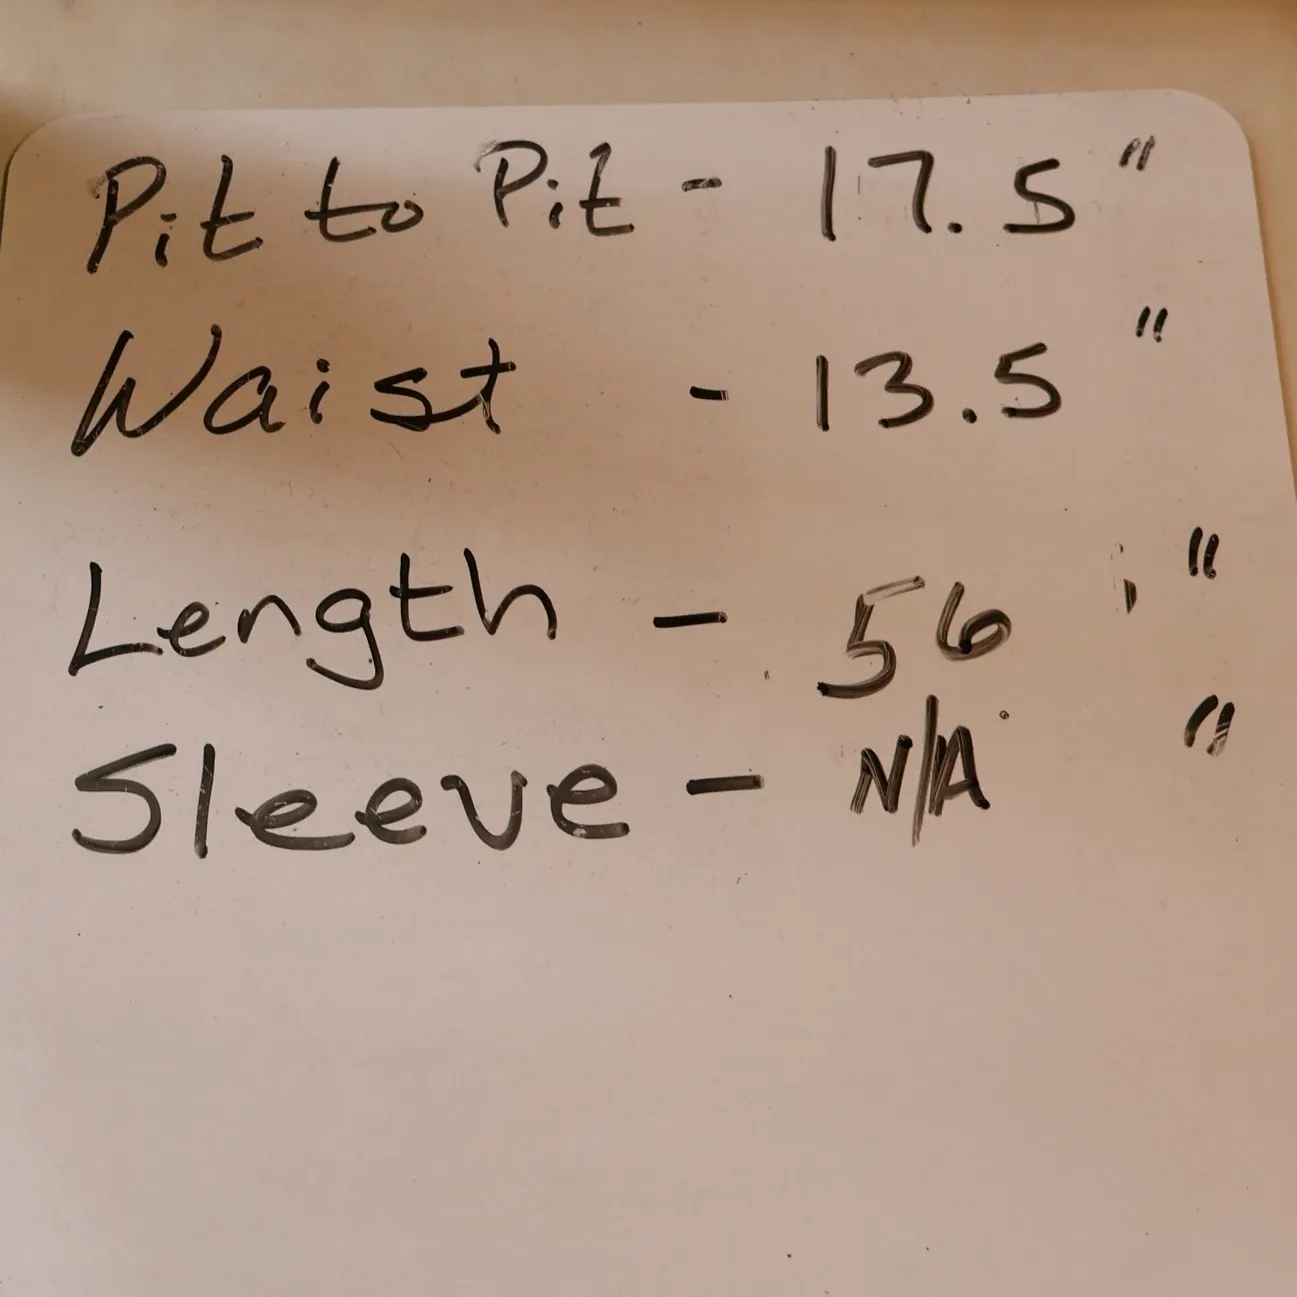 Pit to Pit - 17.5"
Waist - 13.5"
Length - 56"
Sleeve - N/A "